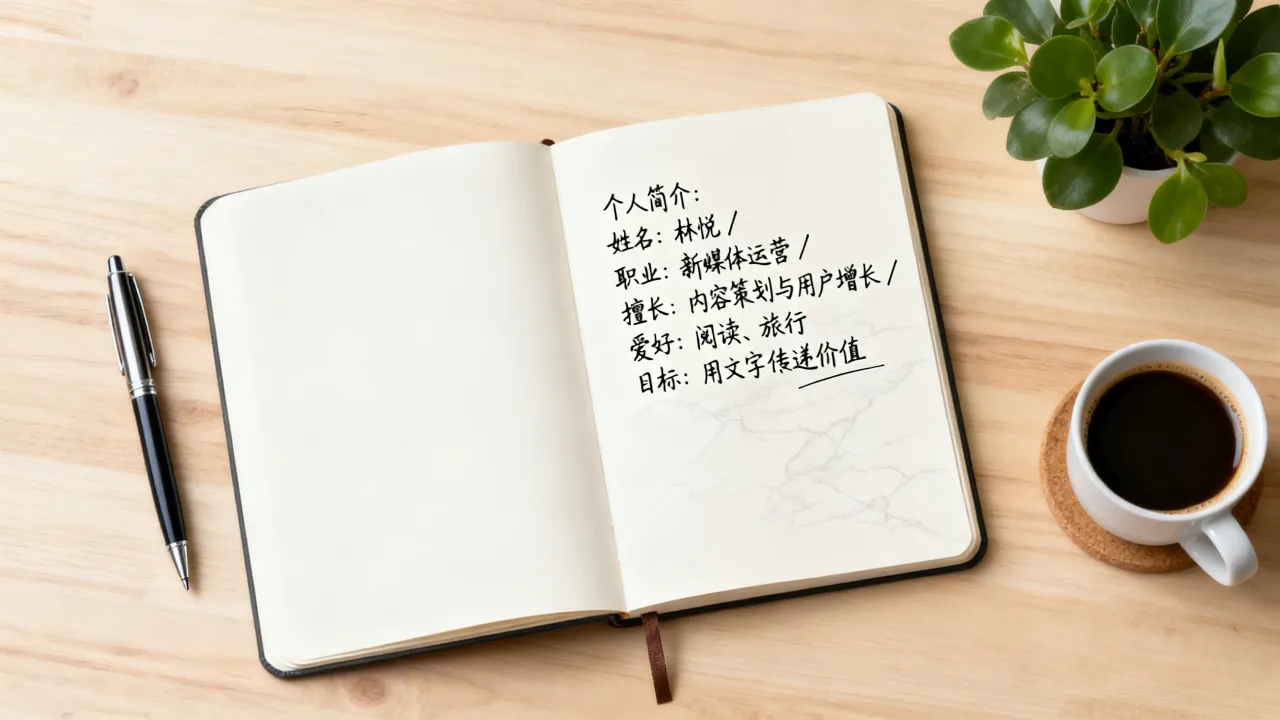 个人简介：
姓名：林悦 /
职业：新媒体运营 /
擅长：内容策划与用户增长 /
爱好：阅读、旅行
目标：用文字传递价值